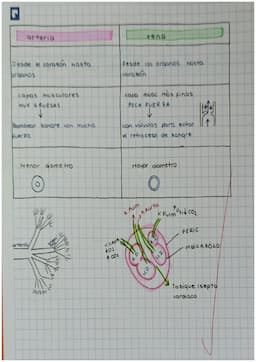 arteria
vena
Desde el corazón hasta
órganos
Desde los órganos hasta
corazón
capas musculares
MUY GRUESAS
capa musc. más finas
POCA FUERZA
Bombear sangre con mucha
fuerza
con válvulas para evitar
el retroceso de sangre
Menor diámetro
Mayor diámetro
arteria
PERIC
MIOCARDIO
Tabique/septo
cardíaco